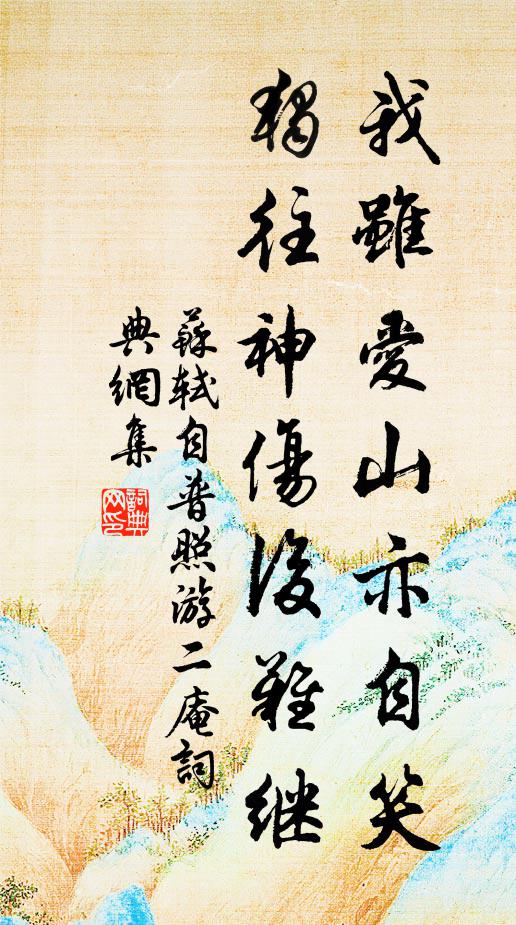 我雖愛山亦自笑
獨往神傷後難继
蘇軾自普照游二庵詞
典網集
詞典網印